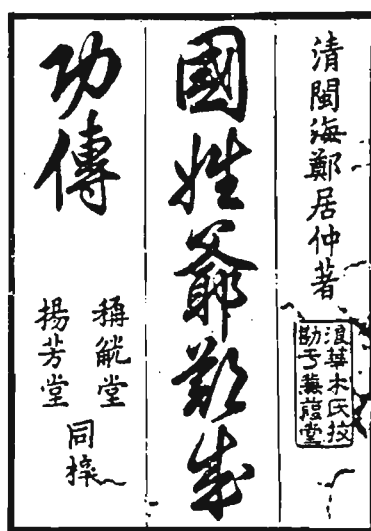 清閩海鄭居仲著
浪華木氏挍
勘于蒹葭堂
國姓爺鄭成
功傳
稱觥堂
揚芳堂
同梓